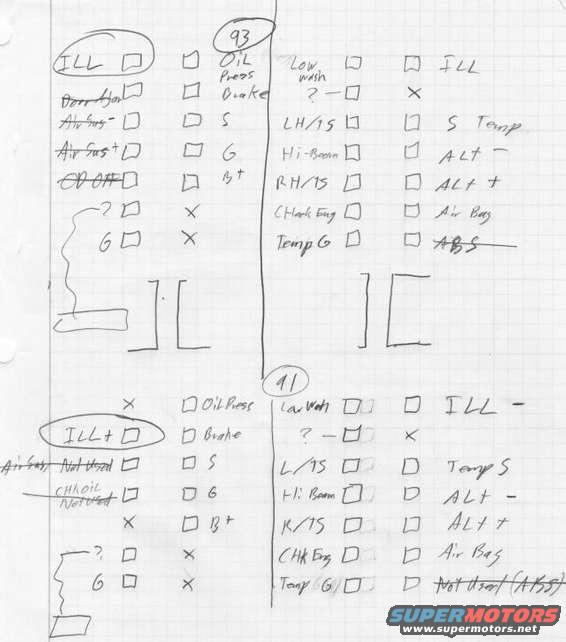 93
ILL
OiL Press
Low Wash
ILL
Door Ajar
Brake
?
x
Air Sus -
S
LH/TS
S Temp
Air Sus +
G
Hi-Beam
ALt -
OD Off
B+
RH/TS
ALt +
?
x
CHeck Eng
Air Bag
G
x
Temp G
ABS
91
x
OiL Press
Low Wash
ILL -
ILL+
Brake
?
x
Air Sus, Not Used
S
L/TS
Temp S
CHKOIL Not Used
G
Hi Beam
ALt -
x
B+
R/TS
ALt +
?
x
CHK Eng
Air Bag
G
x
Temp (G)
Not Used (ABS)
SUPERMOTORS
www.supermotors.net